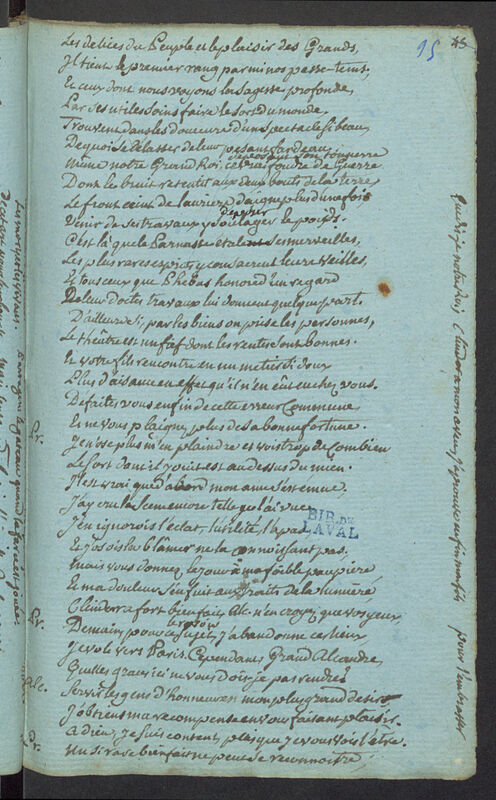 15
45
Les délices du Peuple et le plaisir des Grands,
Il tient le premier rang parmi nos passe-tems,
Et ceux dont nous voyons la sagesse profonde,
Par ses utiles soins faire le sort du monde.
Trouvent dans les douceurs d'un spectacle si beau,
De quoi se délasser de leur pesant fardeau,
Même notre Grand Roi, ce vrai foudre de guerre
déposant son tonnerre
Dont le bruit retentit aux deux bouts de la terre
Le front ceint de lauriers daigne plus d'une fois
Venir de ses travaux y soulager le poids.
déposer
C'est là que le Parnasse étale ses merveilles,
Les plus rares esprits y consacrent leurs veilles,
Et tous ceux que Phébus honore d'un regard
De leurs doctes travaux lui donnent quelque part.
D'ailleurs si par les biens on prise les personnes,
Le théâtre est un fief dont les rentes sont bonnes.
Et votre fils rencontre en un métier si doux
Plus d'aisance en effet qu'il n'en eut eu chez vous.
Défaites vous enfin de cette erreur commune
Et ne vous plaignez plus de sa bonne fortune.
Je n'ose plus m'en plaindre et vois trop de combien
Le sort dont il jouit est au dessus du mien.
Il est vrai que d'abord mon ame s'est émue.
J'ay cru la scene encore telle que je l'ai vue,
J'en ignorois l'éclat, l'utilité, l'apas
Et j'osois la blâmer ne la connoissant pas.
Mais vous donnez le jour à ma foible paupière
Et ma douleur s'enfuit aux traits de la lumière
Clindor a fort bien fait. Alc. n'en croyez que vos yeux,
Demain, pour ce sujet, j'abandonne ces lieux
Je vole vers Paris. Cependant, Grand Alcandre,
Quelles graces ici ne vous dois-je pas rendre?
Servir les gens d'honneur en mon plus grand desir
J'obtiens ma recompense en vous faisant plaisir.
Adieu, je suis content, puisque je vous vois l'être.
Un si rare bienfait ne peut se reconnoitre,
Pr.
Pr.
Alc.
Pr.
BIB. DE
LAVAL